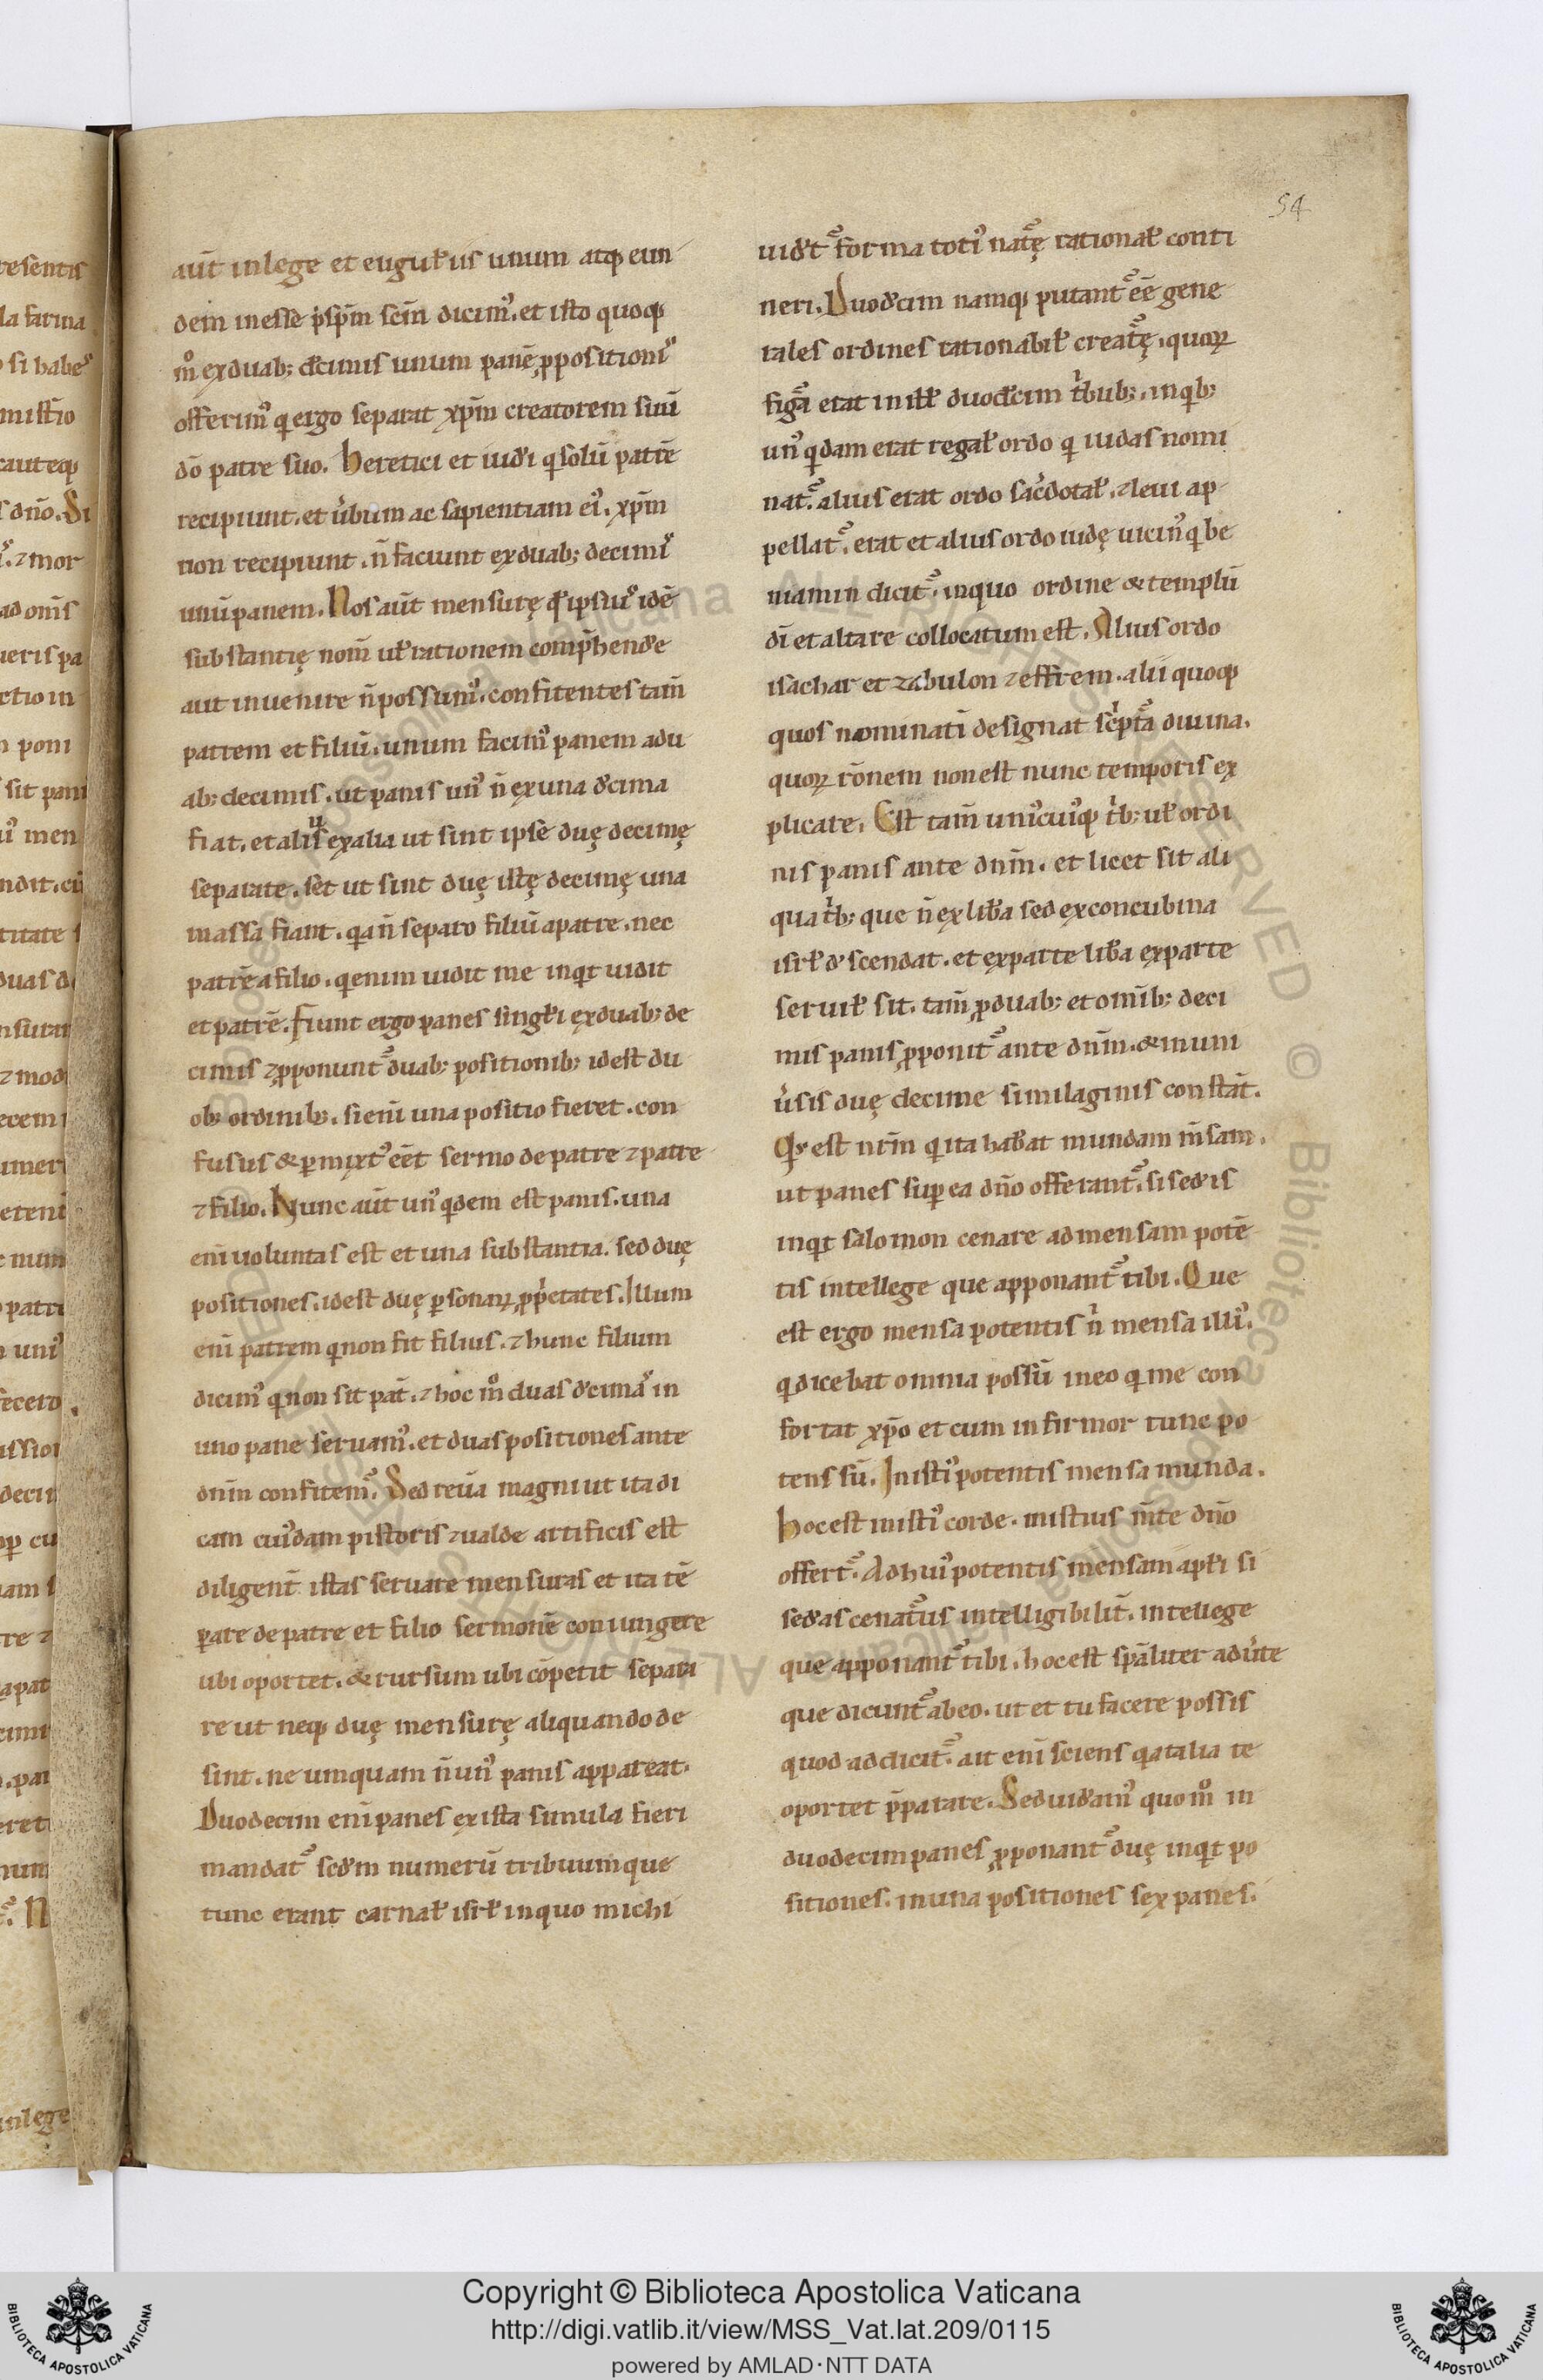 54
aut̄ in lege et euguꝉ iis unum atqꝫ eun
dem inesse p̄ sp̄m sc̄m dicim᷒. et isto quoqꝫ
m̊ ex duabꝫ decimis unum panē ꝓpositionis
offerim᷒ q ergo separat xp̄m creatorem sui
dō patre suo. Heretici et iudei q solū patrē
recipiunt. et u̍bum ac sapientiam ei᷒. xp̄m
non recipiunt. n̄ faciunt ex duabꝫ decimis
unū panem. Nos aut̄ mensurę qd ipsius idē
substantię nom̄ ueꝉ rationem comp̄hendere
aut inuenire n̄ possum᷒. confitentes tam̄
patrem et filiū. unum facim᷒ panem a du
abꝫ decimis. ut panis un᷒ n̄ ex una decima
fiat. et alius ex alia ut sint ipse duę decimę
separate. set ut sint duę istę decimę una
massa fiant. qa n̄ separo filiū a patre. nec
patrē a filio. q enim uidit me inqt uidit
et patrē. Fiunt ergo panes singuꝉi ex duabꝫ de
cimis ⁊ ꝓponunt᷑ duabꝫ positionibꝫ idest du
obꝫ ordinibꝫ. si eni᷑ una positio fieret. con
fusus & ꝑmixt᷒ eēt sermo de patre ⁊ patre
⁊ filio. Nunc aut̄ un᷒ qdem est panis. una
eni᷑ uoluntas est et una substantia. sed duę
positiones. idest duę ꝑsonaꝝ ꝓp̍etates. Illum
eni᷑ patrem q non fit filius. ⁊ hunc filium
dicim᷒ q non sit pat̄. ⁊ hoc m̊ duas decimas in
uno pane seruam᷒. et duas positiones ante
dn̄m confitem᷑. Sed reu̍a magni ut ita di
cam cui᷒dam pistoris ⁊ ualde artificis est
diligent̄ istas seruare mensuras et ita tē
ꝑare de patre et filio sermonē coniungere
ubi oportet. & rursum ubi cōpetit separa
re ut neqꝫ duę mensurę aliquando de
sint. ne umquam n̄ un᷒ panis appareat.
Duodecim eni᷑ panes ex ista simula fieri
mandat᷑ scd̄m numerū tribuum que
tunc erant carnaꝉ isrꝉ in quo michi
uidet᷑ forma toti᷒ nat᷑ę rationaꝉ conti
neri. Duodecim namqꝫ putant᷑ eē gene
rales ordines rationabiꝉ creat᷑ę. quoꝝ
figa᷑ erat in illꝉ duodecim t̍bubꝫ. in qbꝫ
un᷒ qdam erat regaꝉ ordo q iudas nomi
nat᷑. alius erat ordo sac̍dotaꝉ. ⁊ leui ap
pellat᷑. erat et alius ordo iudę uicin᷒ q be
niamin dicit᷑. in quo ordine & templū
dī et altare collocatum est. Alius ordo
isachar et zabulon ⁊ effrem. alii quoqꝫ
quos nominati᷑ designat sc̍pta᷑ diuina.
quoꝝ rōnem non est nunc temporis ex
plicare. Est tam̄ uni᷒cui᷒qꝫ t̍bꝫ ueꝉ ordi
nis panis ante dn̄m. et licet sit ali
qua t̍bꝫ que n̄ ex libera sed ex concubina
isrꝉ descendat. et ex parte libera ex parte
seruiꝉ sit. tam̄ ꝓ duabꝫ et omībꝫ deci
mis panis ꝓponit᷑ ante dn̄m. & in uni
u̍sis duę decime similaginis constat̄.
Qs est nr̄m q ita habeat mundam m̄sam.
ut panes suꝑ ea dn̄o offerant᷑. si sederis
inqt salomon cenare ad mensam potē
tis intellege que apponant᷑ tibi. Que
est ergo mensa potentis n̍ mensa illi᷒.
q dicebat omnia possū in eo q me con
fortat xp̄o et cum infirmor tunc po
tens sū. In isti᷒ potentis mensa munda.
hoc est in isti᷒ corde. in istius m̄te dn̄o
offert᷑. Ad hui᷒ potentis mensam apꝉi si
sedeas cenat᷑us intelligibilit̄. intellege
que apponant᷑ tibi. hoc est sp̄aliter adu̍te
que dicunt᷑ ab eo. ut et tu facere possis
quod ad dicit᷑. ait eni᷑ sciens qa talia te
oportet p̄parare. Sed uideam᷒ quom̊ in
duodecim panes ꝓponant᷑ duę inqt po
sitiones. in una positiones sex panes.
Copyright © Biblioteca Apostolica Vaticana
http://digi.vatlib.it/view/MSS_Vat.lat.209/0115
powered by AMLAD·NTT DATA
BIBLIOTECA APOSTOLICA VATICANA
BIBLIOTECA APOSTOLICA VATICANA